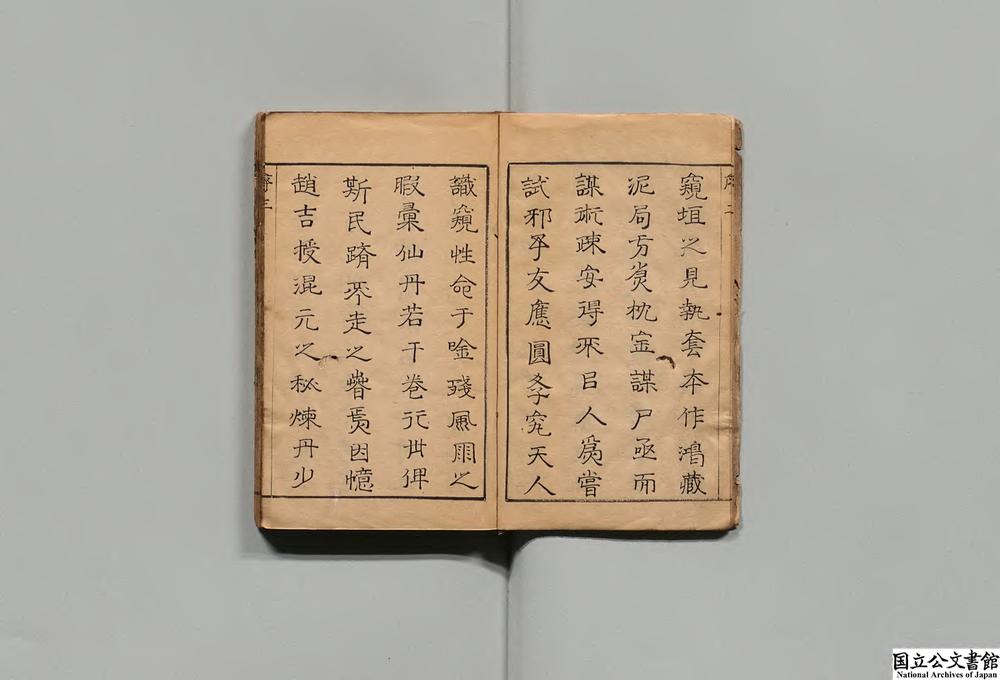 序二
窺垣之見執套本作鴻藏
泥局方枕謀尸亟而
謀術疎安得不以人爲嘗
試邪予友應圓李究天人
識窺性命于唫殘風雨之
暇彙仙丹若干卷行世俾
斯民躋不之焉因憶
趙吉授混元之秘煉丹少
序三
国立公文書館
National Archives of Japan